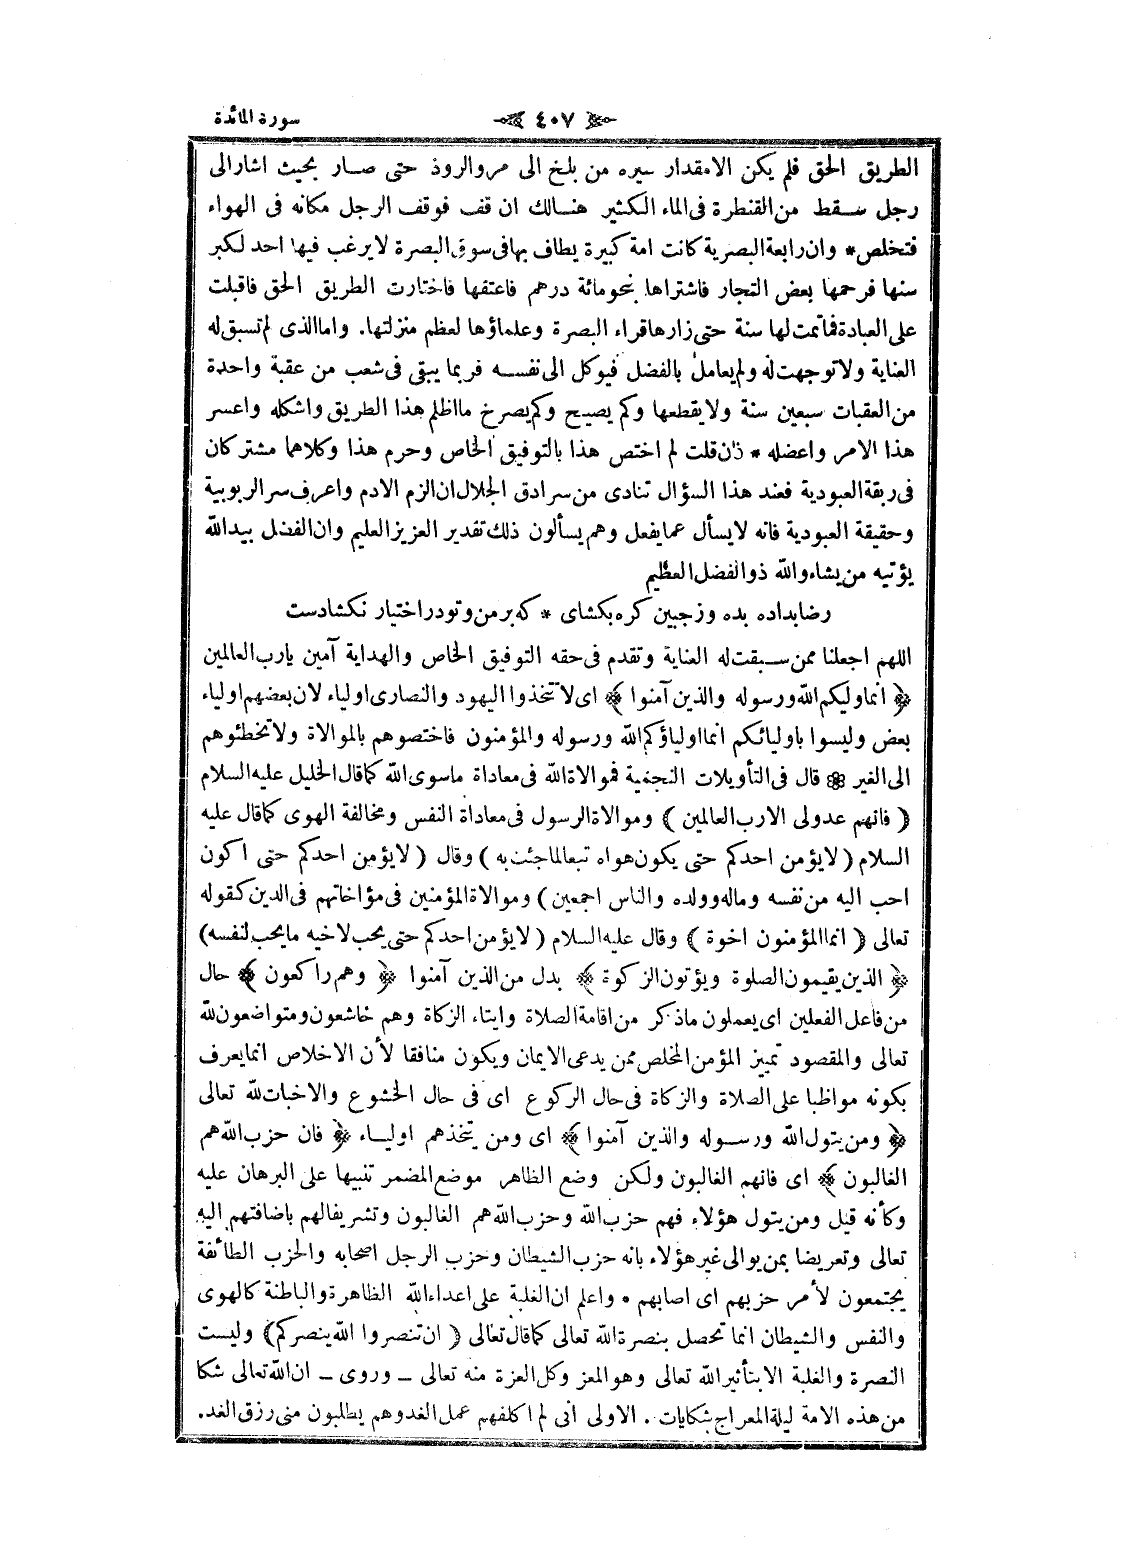 سورة المائدة
﴿ ٤٠٧ ﴾
الطريق الحق فلم يكن الامقدار سيره من بلخ الى مروالروذ حتى صار بحيث اشارالى
رجل سقط من القنطرة فى الماء الكثير هنالك ان قف فوقف الرجل مكانه فى الهواء
فتخلص* وان رابعة البصرية كانت امة كبيرة يطاف بها فى سوق البصرة لايرغب فيها احد لكبر
سنها فرحمها بعض التجار فاشتراها بنحومائة درهم فاعتقها فاختارت الطريق الحق فاقبلت
على العبادة فماتمت لها سنة حتى زارها قراء البصرة وعلماؤها لعظم منزلتها. واماالذى لم تسبق له
العناية ولا توجهت له ولم يعامل بالفضل فيوكل الى نفسه فربما يبقى فى شعب من عقبة واحدة
من العقبات سبعين سنة ولايقطعها وكم يصيح وكم يصرخ مااظلم هذا الطريق واشكله واعسر
هذا الامر واعضله * فان قلت لم اختص هذا بالتوفيق الخاص وحرم هذا وكلاهما مشتركان
فى ربقة العبودية فعند هذا السؤال تنادى من سرادق الجلال ان الزم الادم واعرف سر الربوبية
وحقيقة العبودية فانه لايسأل عما يفعل وهم يسألون ذلك تقدير العزيز العليم وان الفضل بيدالله
يؤتيه من يشاء والله ذوالفضل العظيم
رضا بداده بده وزجبين كره بكشاى * كه بر من وتودر اختيار نكشادست
اللهم اجعلنا ممن سبقت له العناية وتقدم فى حقه التوفيق الخاص والهداية آمين يارب العالمين
﴿ انماوليكم الله ورسوله والذين آمنوا ﴾ اى لا تتخذوا اليهود والنصارى اولياء لان بعضهم اولياء
بعض وليسوا باوليائكم انما اولياؤكم الله ورسوله والمؤمنون فاختصوهم بالموالاة ولا تخطئوهم
الى الغير ❁ قال فى التأويلات النجمية فموالاة الله فى معاداة ماسوى الله كما قال الخليل عليه السلام
( فانهم عدولى الارب العالمين ) وموالاة الرسول فى معاداة النفس ومخالفة الهوى كماقال عليه
السلام ( لايؤمن احدكم حتى يكون هواه تبعا لماجئت به ) وقال ( لايؤمن احدكم حتى اكون
احب اليه من نفسه وماله وولده والناس اجمعين ) وموالاة المؤمنين فى مؤاخاتهم فى الدين كقوله
تعالى ( انما المؤمنون اخوة ) وقال عليه السلام ( لايؤمن احدكم حتى يحب لاخيه مايحب لنفسه)
﴿ الذين يقيمون الصلوة ويؤتون الزكوة ﴾ بدل من الذين آمنوا ﴿ وهم راكعون ﴾ حال
من فاعل الفعلين اى يعملون ماذكر من اقامة الصلاة وايتاء الزكاة وهم خاشعون ومتواضعون لله
تعالى والمقصود تمييز المؤمن المخلص ممن يدعى الايمان ويكون منافقا لأن الاخلاص انمايعرف
بكونه مواظبا على الصلاة والزكاة فى حال الركوع اى فى حال الخشوع والاخبات لله تعالى
﴿ ومن يتول الله ورسوله والذين آمنوا ﴾ اى ومن يتخذهم اولياء ﴿ فان حزب الله هم
الغالبون ﴾ اى فانهم الغالبون ولكن وضع الظاهر موضع المضمر تنبيها على البرهان عليه
وكأنه قيل ومن يتول هؤلاء فهم حزب الله وحزب الله هم الغالبون وتشريفالهم باضافتهم اليه
تعالى وتعريضا بمن يوالى غيرهؤلاء بانه حزب الشيطان وحزب الرجل اصحابه والحزب الطائفة
يجتمعون لأمر حزبهم اى اصابهم * واعلم ان الغلبة على اعداء الله الظاهرة والباطنة كالهوى
والنفس والشيطان انما تحصل بنصرة الله تعالى كماقال تعالى ( ان تنصروا الله ينصركم) وليست
النصرة والغلبة الا بتأثير الله تعالى وهوالمعز وكل العزة منه تعالى – وروى – ان الله تعالى شكا
من هذه الامة ليلة المعراج بشكايات . الاولى انى لم اكلفهم عمل الغد وهم يطلبون منى رزق الغد.